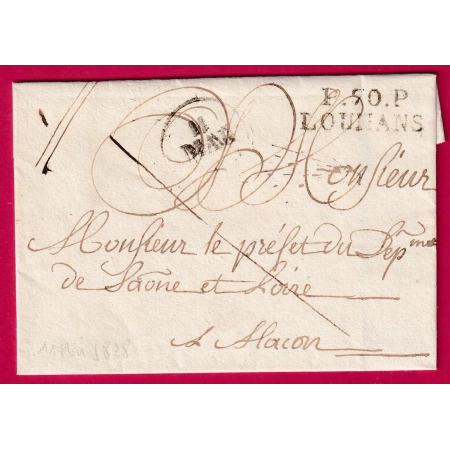 P.50.P
LOUHANS
11
Monsieur
Monsieur le préfet du Dépmnt
de Saône et Loire
A Macon
1828